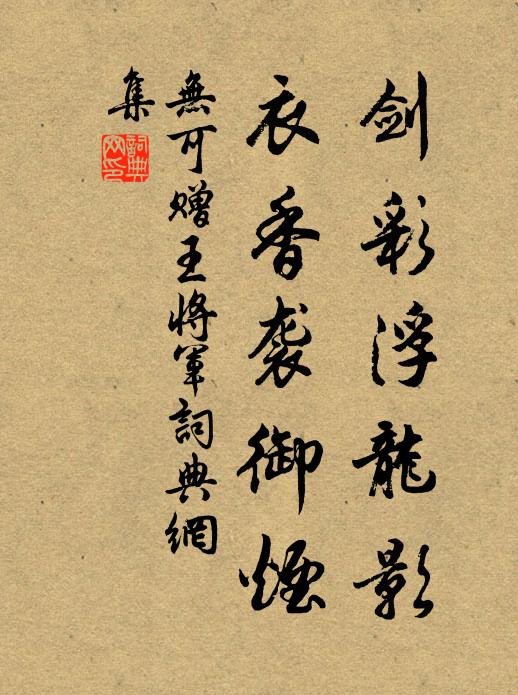 剑彩浮龍影
衣香袭御煙
無可贈王將軍詞典網
集
詞典
网印